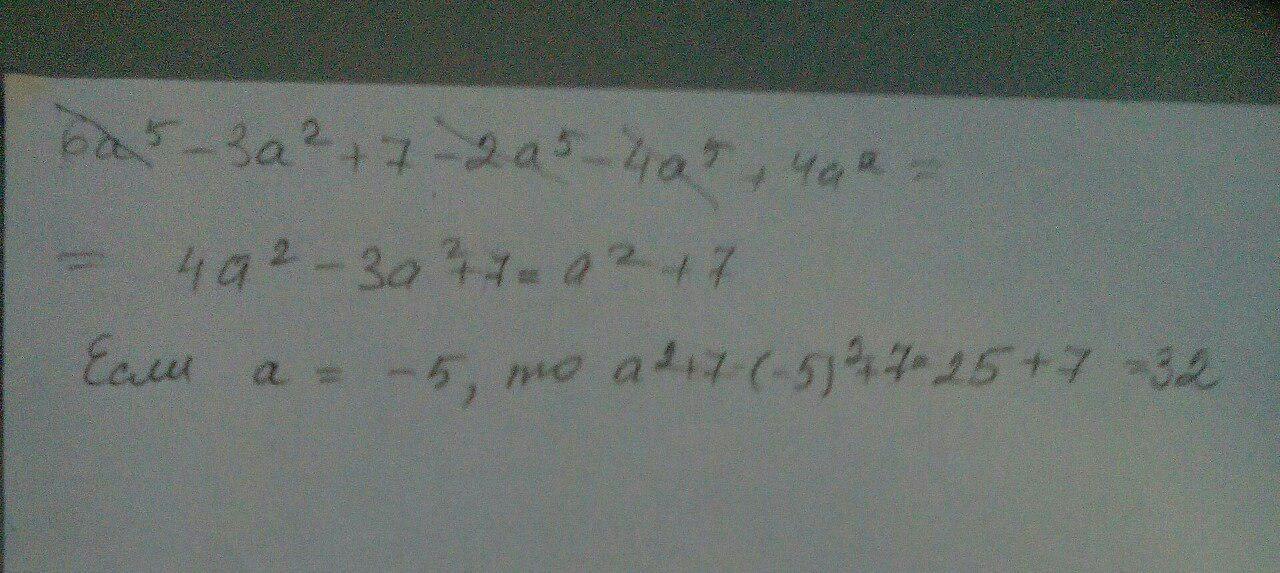 6a⁵ - 3a² + 7 - 2a⁵ - 4a⁵ + 4a² =
= 4a² - 3a² + 7 = a² + 7
Если a = -5, то a² + 7 = (-5)² + 7 = 25 + 7 = 32